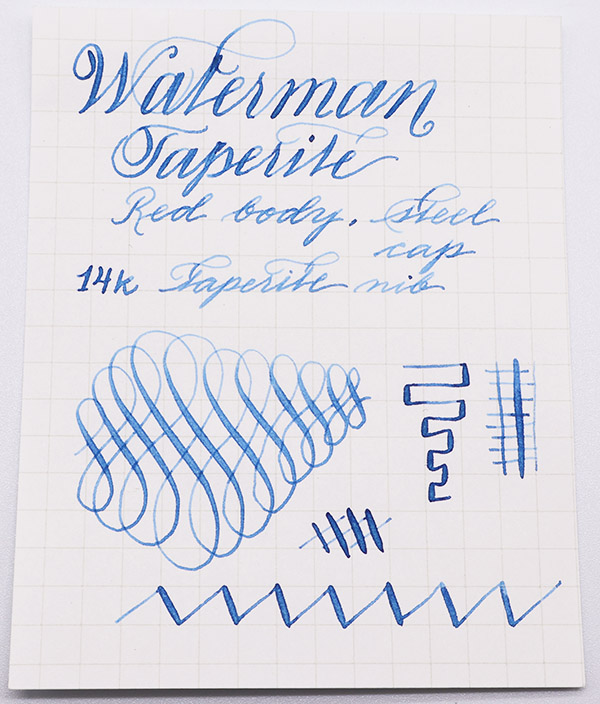 Waterman
Taperite
Red body, steel
cap
14k Taperite nib